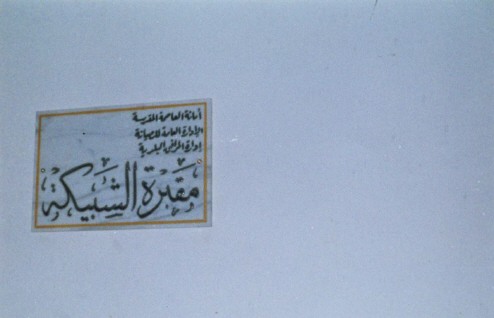 أمانة العاصمة المقدسة
الإدارة العامة للصيانة
إدارة المرافق البلدية
مقبرة الشبيكة